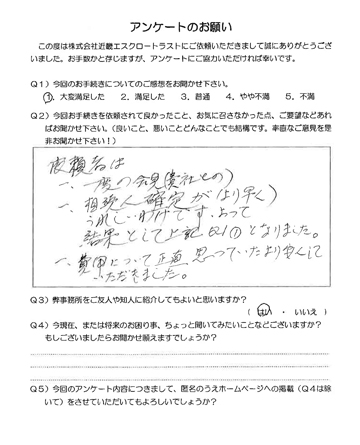 アンケートのお願い
この度は株式会社近畿エスクロートラストにご依頼いただきまして誠にありがとうござ
いました。お手数かと存じますが、アンケートにご協力いただければ幸いです。
Q１）今回のお手続きについてのご感想をお聞かせ下さい。
①．大変満足した　２．満足した　３．普通　４．やや不満　５．不満
Q２）今回お手続きを依頼されて良かったこと、お気に召さなかった点、ご要望などあれ
ばお聞かせ下さい。（良いこと、悪いことどんなことでも結構です。率直なご意見を是
非お聞かせ下さい！）
依頼者は
一、一度の会見（貴社との）
一、相続人確定が（より早く）
うれしいわけです、よって
結果として上記Q1①となりました。
一、費用について正直思っていたより安くして
いただきました。
Q３）弊事務所をご友人や知人に紹介してもよいと思いますか？
（ はい ・ いいえ ）
Q４）今現在、または将来のお困り事、ちょっと聞いてみたいことなどございますか？
もしございましたらお聞かせ願えますでしょうか？
Q５）今回のアンケート内容につきまして、匿名のうえホームページへの掲載（Q４は除
いて）をさせていただいてもよろしいでしょうか？